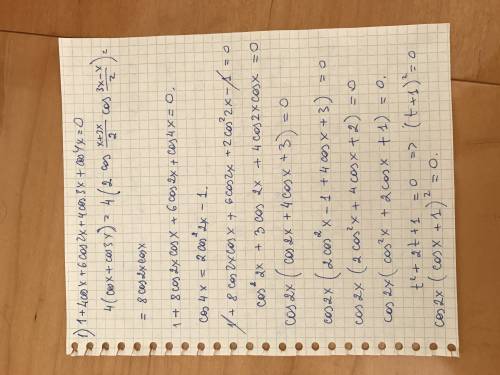 1) 1 + 4cosx + 6cos2x + 4cos3x + cos4x = 0
4(cosx + cos3x) = 4(2 cos (x+3x)/2 cos (3x-x)/2) =
= 8cos2xcosx
1 + 8cos2xcosx + 6cos2x + cos4x = 0.
cos4x = 2cos²2x - 1.
1 + 8cos2xcosx + 6cos2x + 2cos²2x - 1 = 0
cos²2x + 3cos2x + 4cos2xcosx = 0
cos2x (cos2x + 4cosx + 3) = 0
cos2x (2cos²x - 1 + 4cosx + 3) = 0
cos2x (2cos²x + 4cosx + 2) = 0
cos2x (cos²x + 2cosx + 1) = 0.
t² + 2t + 1 = 0 => (t + 1)² = 0
cos2x (cosx + 1)² = 0.